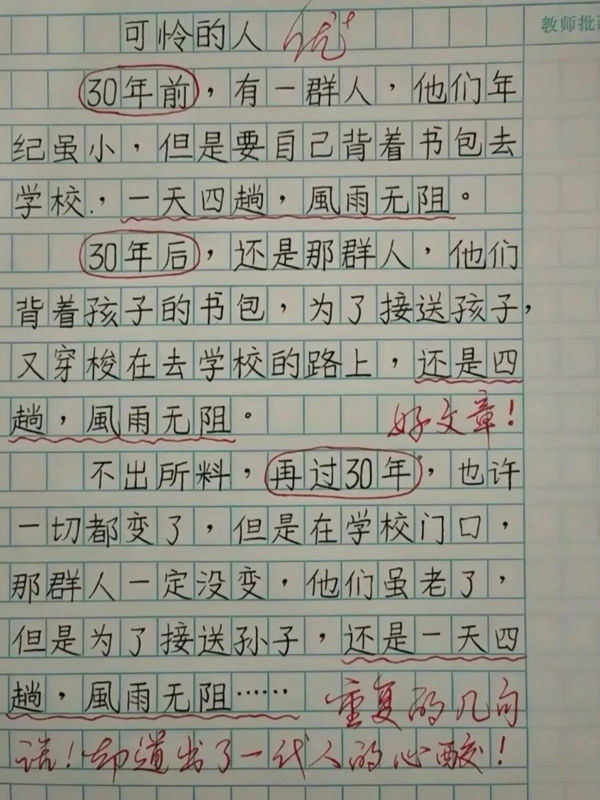 可怜的人 优+
教师批
30年前，有一群人，他们年
纪虽小，但是要自己背着书包去
学校，一天四趟，風雨无阻。
30年后，还是那群人，他们
背着孩子的书包，为了接送孩子，
又穿梭在去学校的路上，还是四
趟，風雨无阻。 好文章！
不出所料，再过30年，也许
一切都变了，但是在学校门口，
那群人一定没变，他们虽老了，
但是为了接送孙子，还是一天四
趟，風雨无阻…… 重复的几句
话！却道出了一代人的心酸！